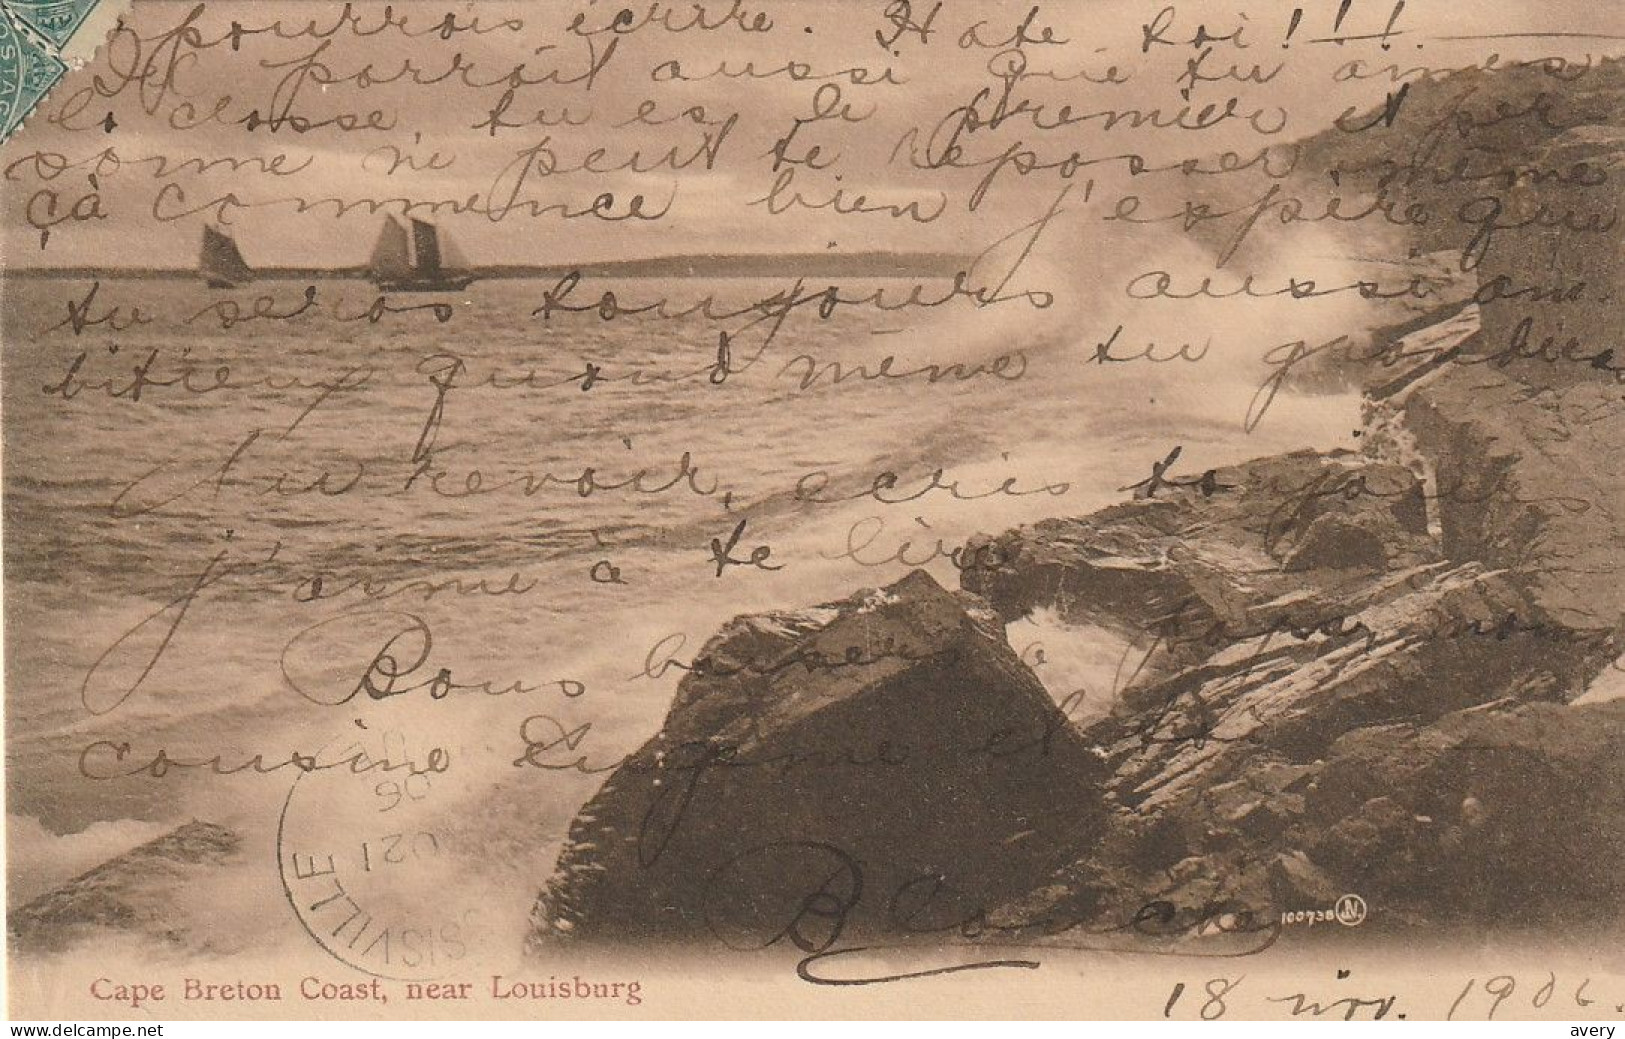 pourrois écrire. Hate toi!!!
Il parroit aussi que tu aimes
la classe, tu es le premier et per-
sonne ne peut te repasser, même
çà commence bien j'espère que
tu seras toujours aussi am-
bitieux quand même tu grandiras
Au revoir, ecris toujours
j'aime à te lire
Bons baisers à papa, maman
cousine Eugeme et toi
Blanche
18 nov. 1906.
Cape Breton Coast, near Louisburg
100738 JV
SISVILLE
21
06
POSTAG
avery